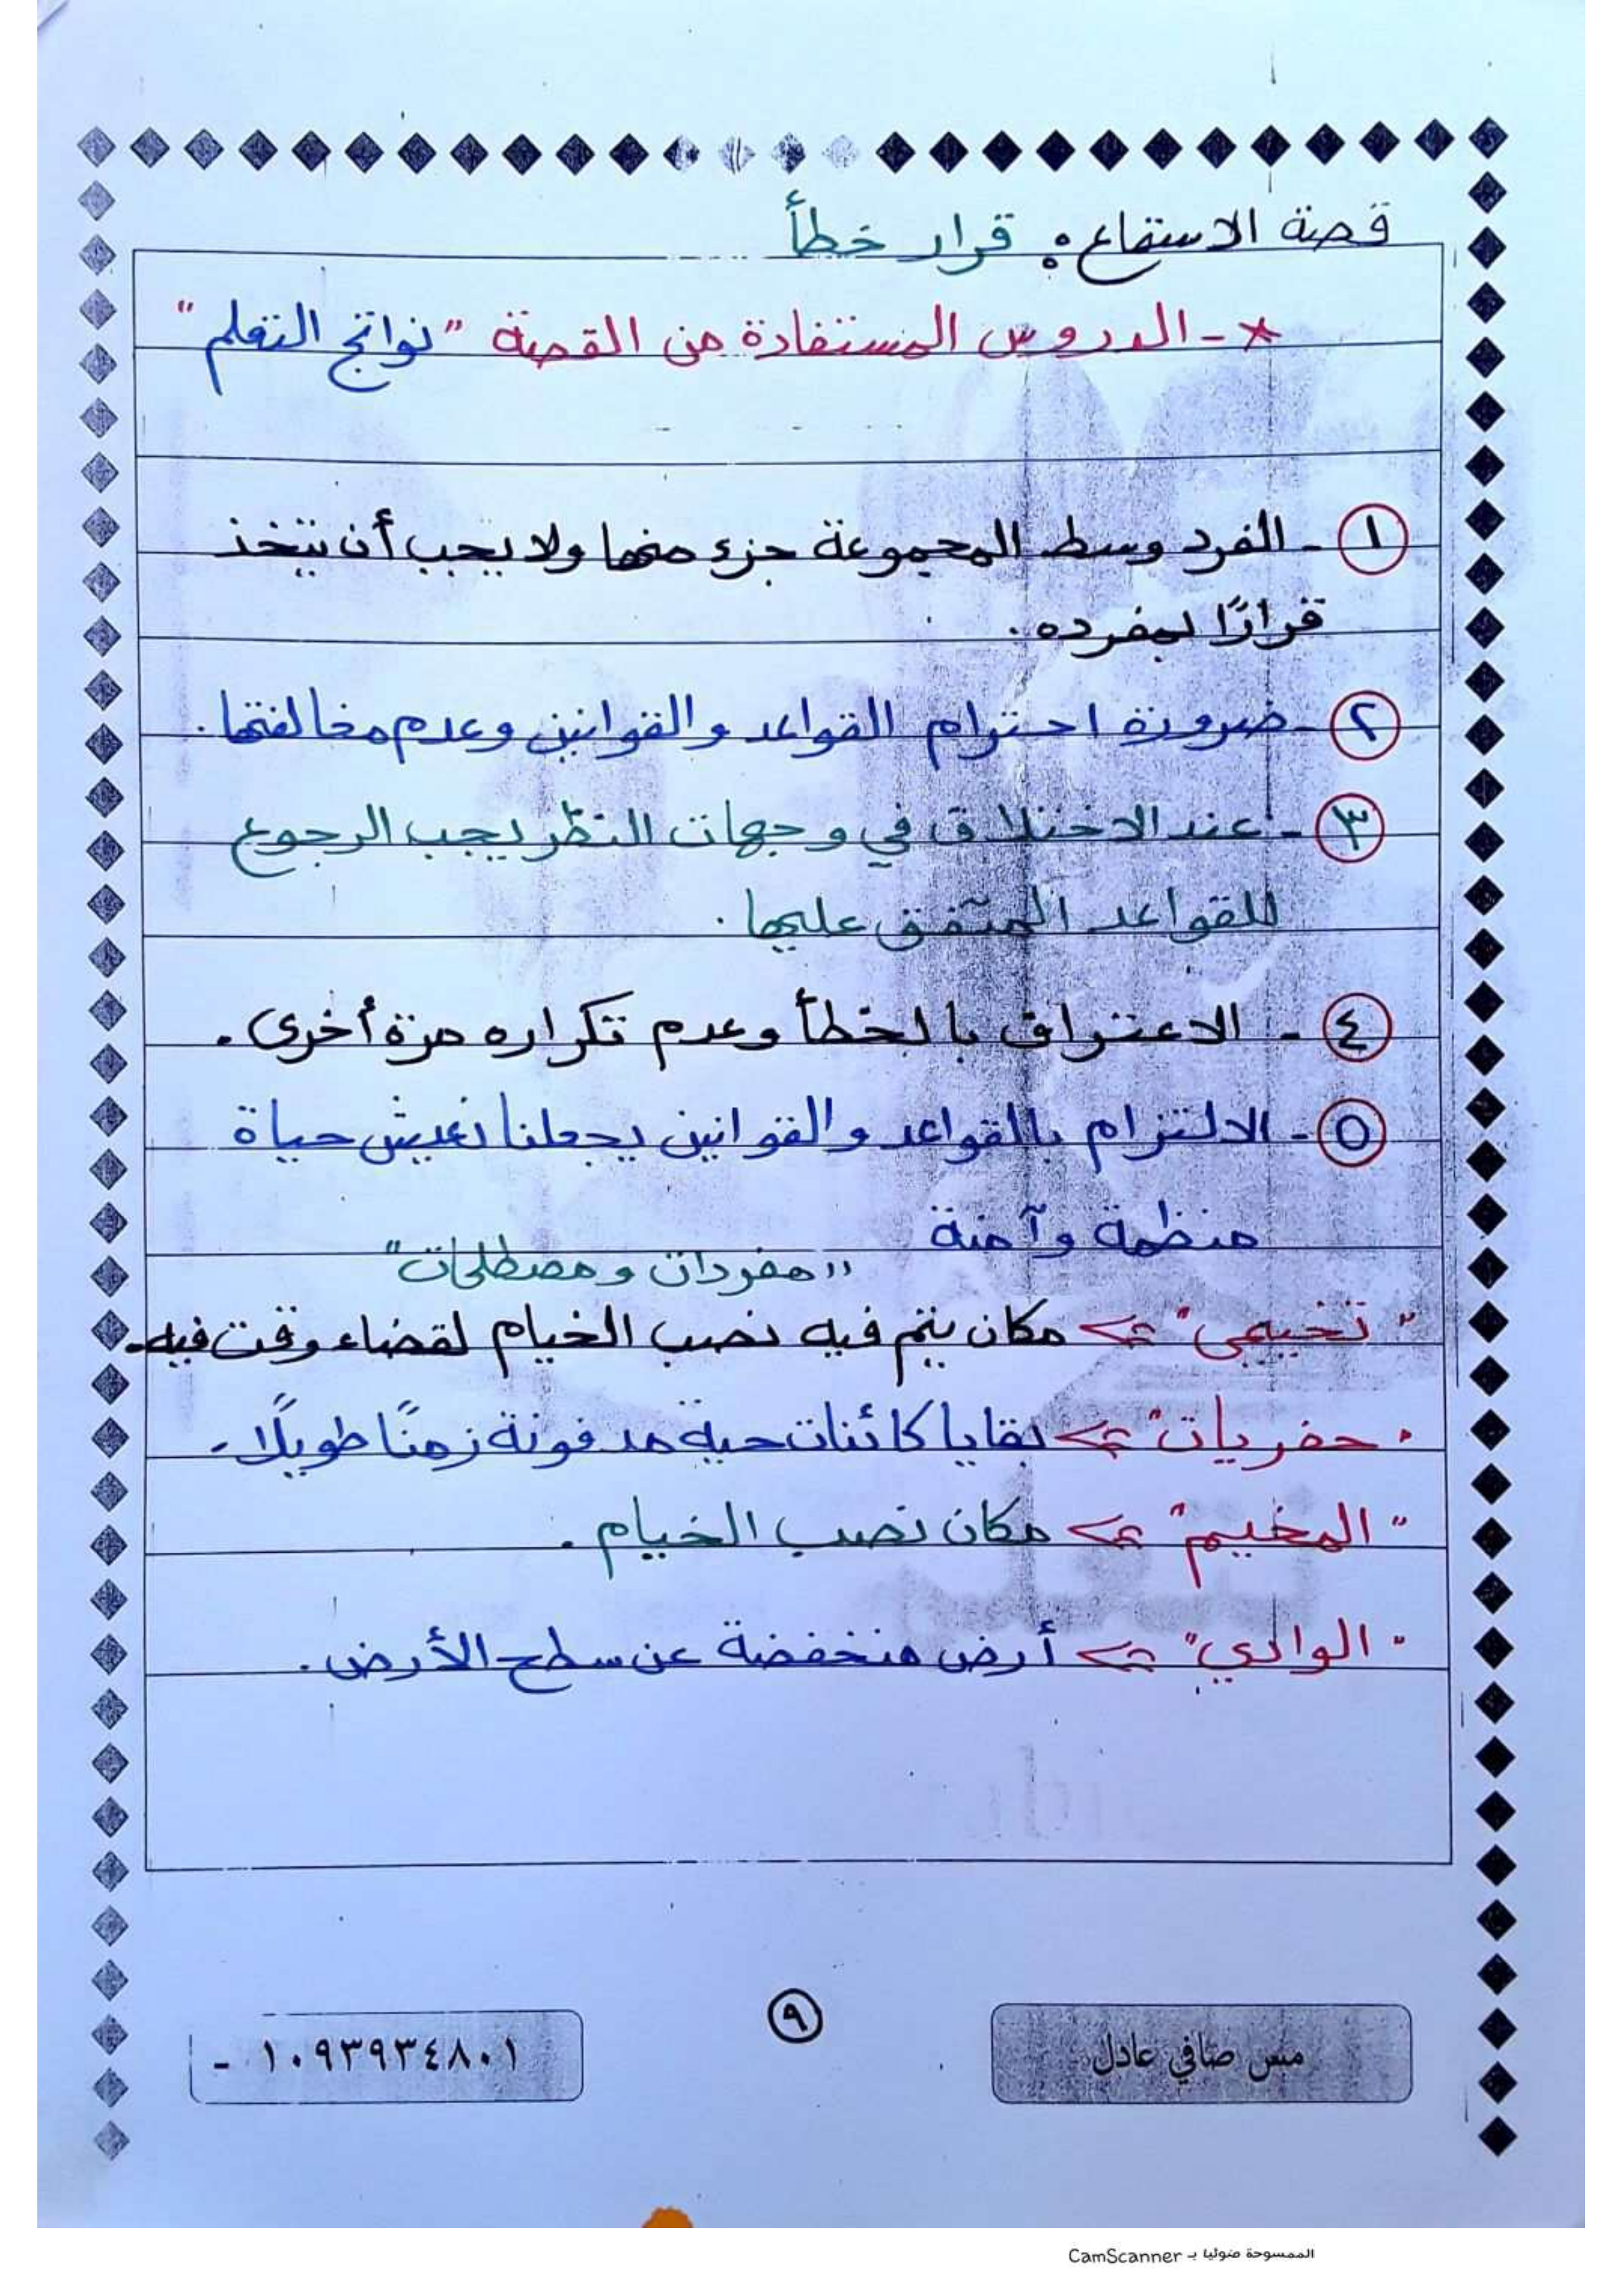 قصة الاستماع: قرار خطأ
* - الدروس المستفادة من القصة "نواتج التعلم"
١ - الفرد وسط المجموعة جزء منها ولا يجب أن يتخذ
قرارًا بمفرده.
٢ - ضرورة احترام القواعد والقوانين وعدم مخالفتها.
٣ - عند الاختلاف في وجهات النظر يجب الرجوع
للقواعد المتفق عليها.
٤ - الاعتراف بالخطأ وعدم تكراره مرة أخرى.
٥ - الالتزام بالقواعد والقوانين يجعلنا نعيش حياة
منظمة وآمنة
"مفردات ومصطلحات"
"تخييمي" => مكان يتم فيه نصب الخيام لقضاء وقت فيه.
"حفريات" => بقايا كائنات حية مدفونة زمنًا طويلًا.
"المخيم" => مكان نصب الخيام.
"الوادي" => أرض منخفضة عن سطح الأرض.
مس صافي عادل
٩
١٠٩٣٩٣٤٨٠١ -
الممسوحة ضوئيا بـ CamScanner